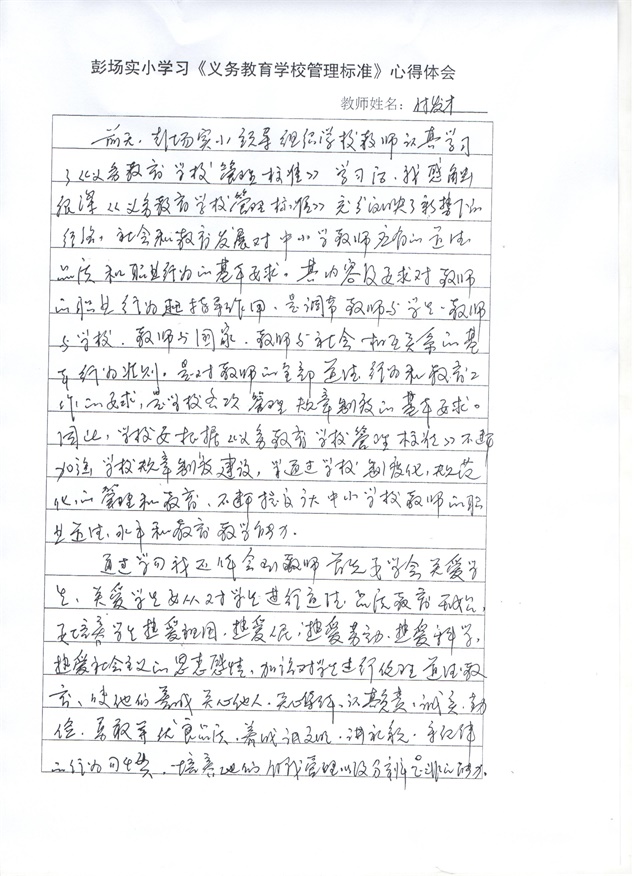 彭场实小学习《义务教育学校管理标准》心得体会
教师姓名：付发才
前天，彭场实小领导组织学校教师认真学习
了《义务教育学校管理标准》学习后，我感触
很深《义务教育学校管理标准》充分反映了新形势下的
经济、社会和教育发展对中小学教师应有的道德
品质和职业行为的基本要求。其内容及要求对教师
的职业行为起指导作用，是调节教师与学生、教师
与学校、教师与国家、教师与社会相互关系的基
本行为准则。是对教师的全部道德行为和教育工
作的要求，是学校各项管理规章制度的基本要求。
因此，学校要根据《义务教育学校管理标准》不断
加强学校规章制度建设，要通过学校制度化，规范
化，的管理和教育、不断提高广大中小学校教师的职
业道德，水平和教育教学能力。
通过学习我还体会到教师首先要学会关爱学
生，关爱学生要从对学生进行道德品质教育开始，
要培养学生热爱祖国，热爱人民，热爱劳动，热爱科学，
热爱社会主义的思想感情，加强对学生进行伦理道德教
育、使他们养成关心他人，关心集体、认真负责，诚实，勤
俭，勇敢等优良品质，养成讲文明，讲礼貌，守纪律
的行为习惯，培养他们自我管理以及分辨是非的能力。